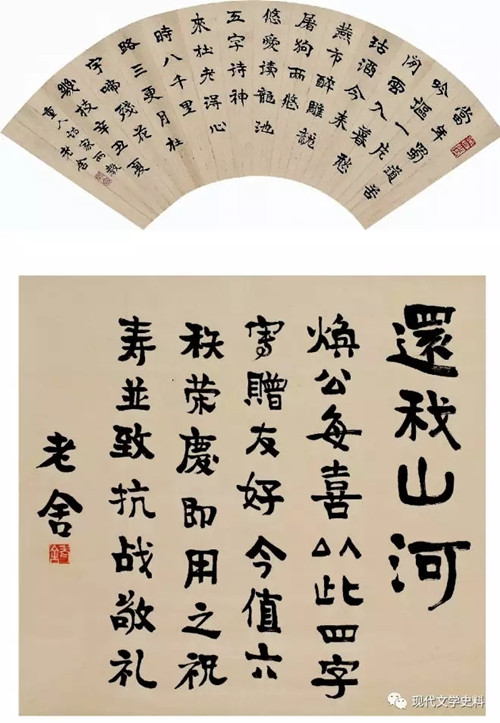 當年蜀道苦
吟謳一
入暮愁
沽酒今來
燕市醉雕龍
屠狗兩悠
悠晚讀龍池
五字诗神
來杜老得心
時八千里
路三更月杜
宇嘴殘花夏
枝辛丑
老舍
還我山河
煥公每喜以此四字
寫贈友好今值六
秩荣慶即用之祝
寿並致抗战敬礼
老舍
现代文学史料